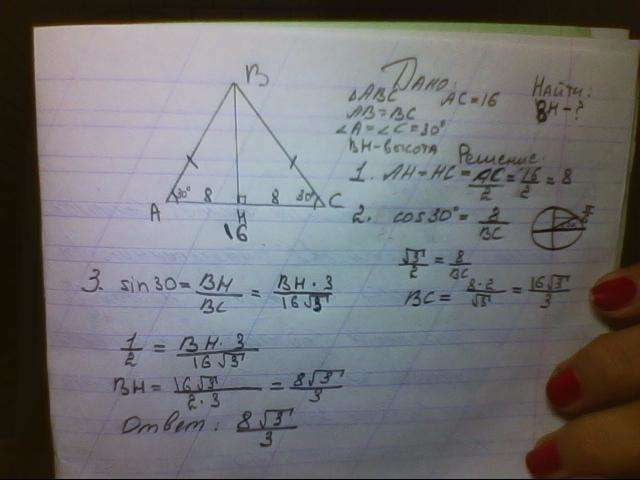 B
30° 8 8 30°
A H C
16
Дано
△ABC AC=16
AB=BC
∠A=∠C=30°
BH-высота
Найти:
BH-?
Решение
1. AH=HC=AC/2=16/2=8
2. cos30°=8/BC
√3/2=8/BC
BC=8·2/√3=16√3/3
3. sin30=BH/BC=BH·3/16√3
1/2=BH·3/16√3
BH=16√3/2·3=8√3/3
Ответ: 8√3/3